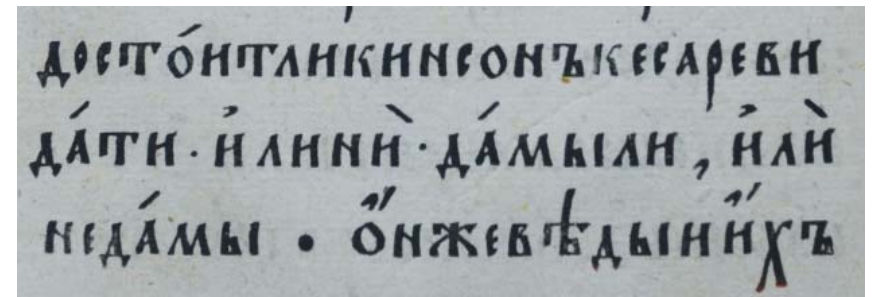 досто́итликинсонъкесареви
да́ти · и҆линѝ · да́мыли , и҆лѝ
неда́мы • о҆́нжевѣдыии҆́хъ